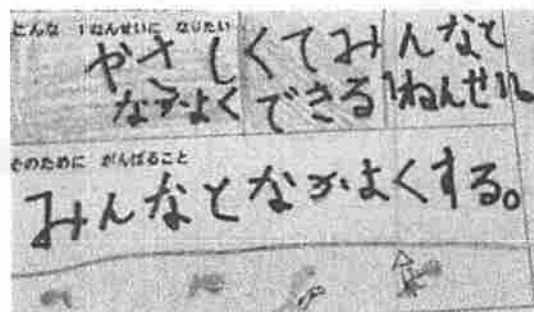 どんな 1ねんせいに なりたい
やさしくてみんなと
なかよくできる1ねんせい。
そのために がんばること
みんなとなかよくする。